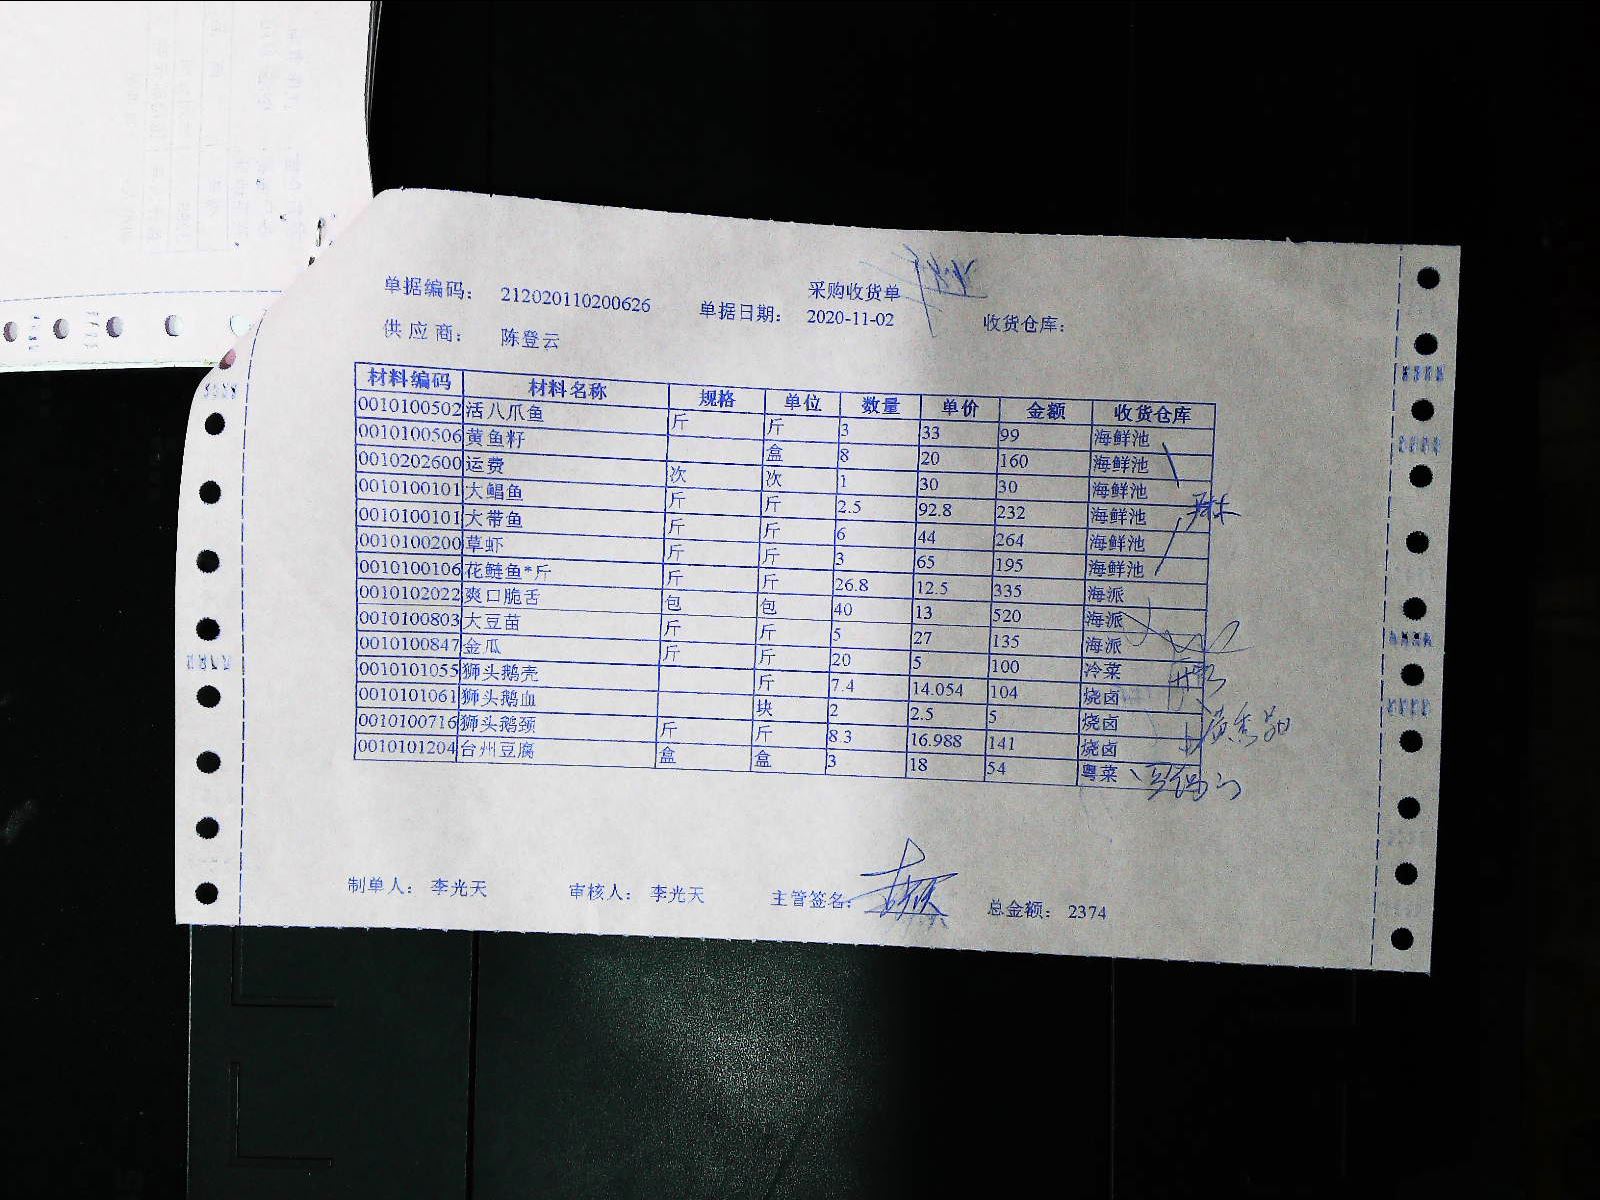 采购收货单
单据编码： 212020110200626 单据日期： 2020-11-02 收货仓库：
供应商： 陈登云
材料编码 材料名称 规格 单位 数量 单价 金额 收货仓库
0010100502 活八爪鱼 斤 斤 3 33 99 海鲜池
0010100506 黄鱼籽 盒 8 20 160 海鲜池
0010202600 运费 次 次 1 30 30 海鲜池
0010100101 大鲳鱼 斤 斤 2.5 92.8 232 海鲜池
0010100101 大带鱼 斤 斤 6 44 264 海鲜池
0010100200 草虾 斤 斤 3 65 195 海鲜池
0010100106 花鲢鱼*斤 斤 斤 26.8 12.5 335 海派
0010102022 爽口脆舌 包 包 40 13 520 海派
0010100803 大豆苗 斤 斤 5 27 135 海派
0010100847 金瓜 斤 斤 20 5 100 冷菜
0010101055 狮头鹅壳 斤 7.4 14.054 104 烧卤
0010101061 狮头鹅血 块 2 2.5 5 烧卤
0010100716 狮头鹅颈 斤 斤 8.3 16.988 141 烧卤
0010101204 台州豆腐 盒 盒 3 18 54 粤菜
制单人： 李光天 审核人： 李光天 主管签名： 总金额： 2374